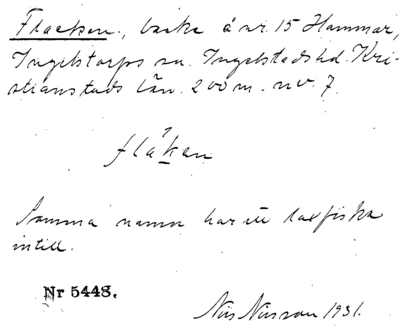 Flacken, backe å nr. 15 Hammar,
Ingelstorps sn. Ingelstads hd. Kri-
stianstads län. 200 m. nv. 7.
flåkan
Samma namn har ett laxfiske
intill.
Nr 5448.
Nils Nilsson 1931.